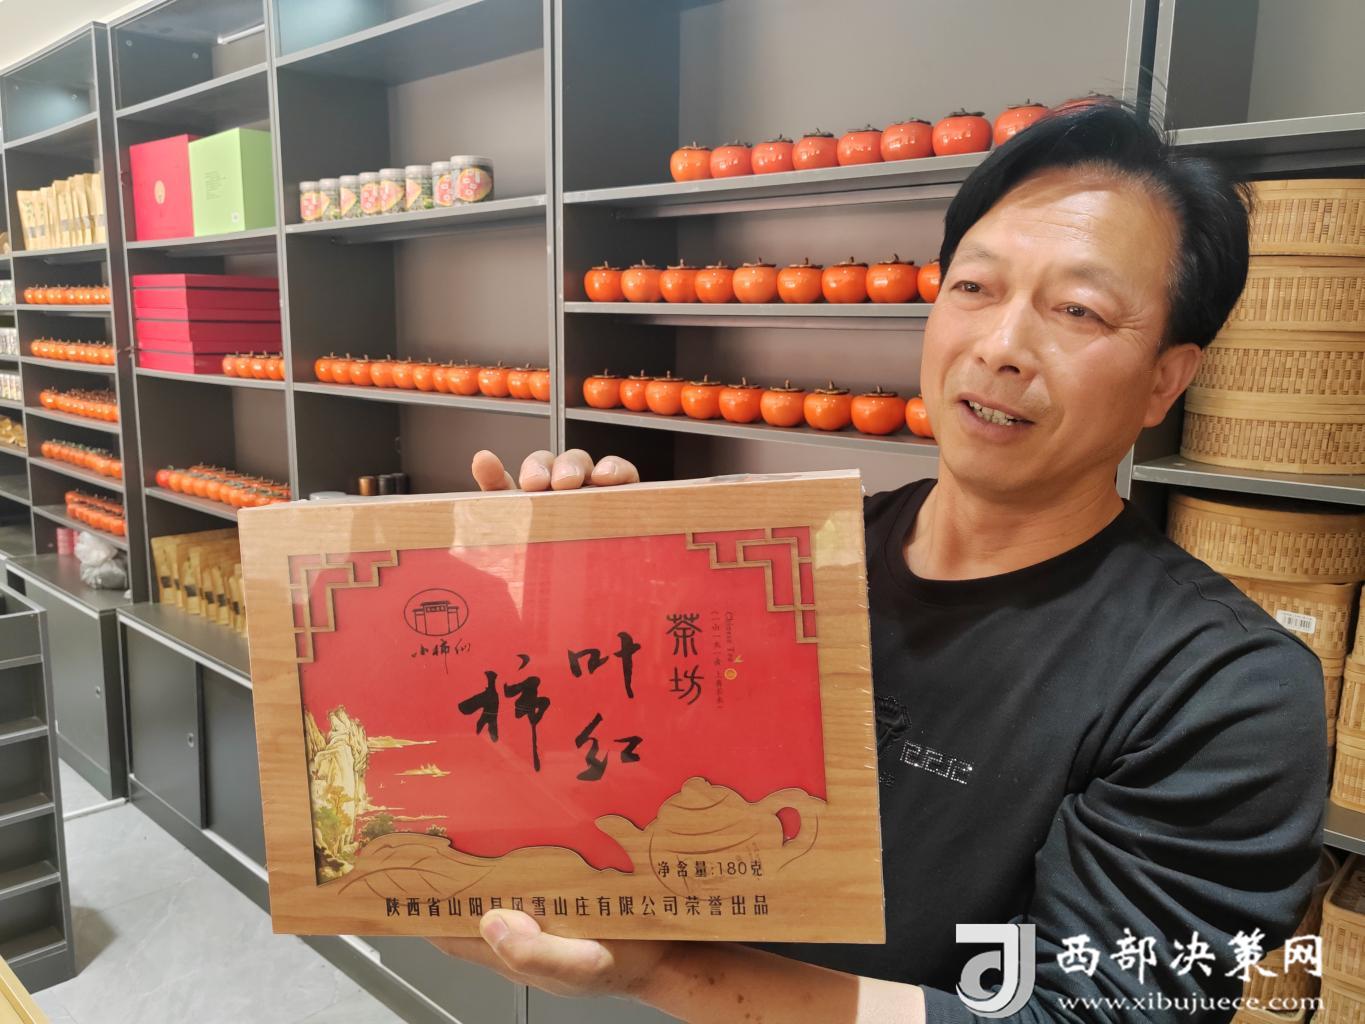 小柿仙
柿叶红
茶坊
Chinese Tea
净含量:180克
陕西省山阳县风雪山庄有限公司荣誉出品
西部决策网
www.xibujuece.com